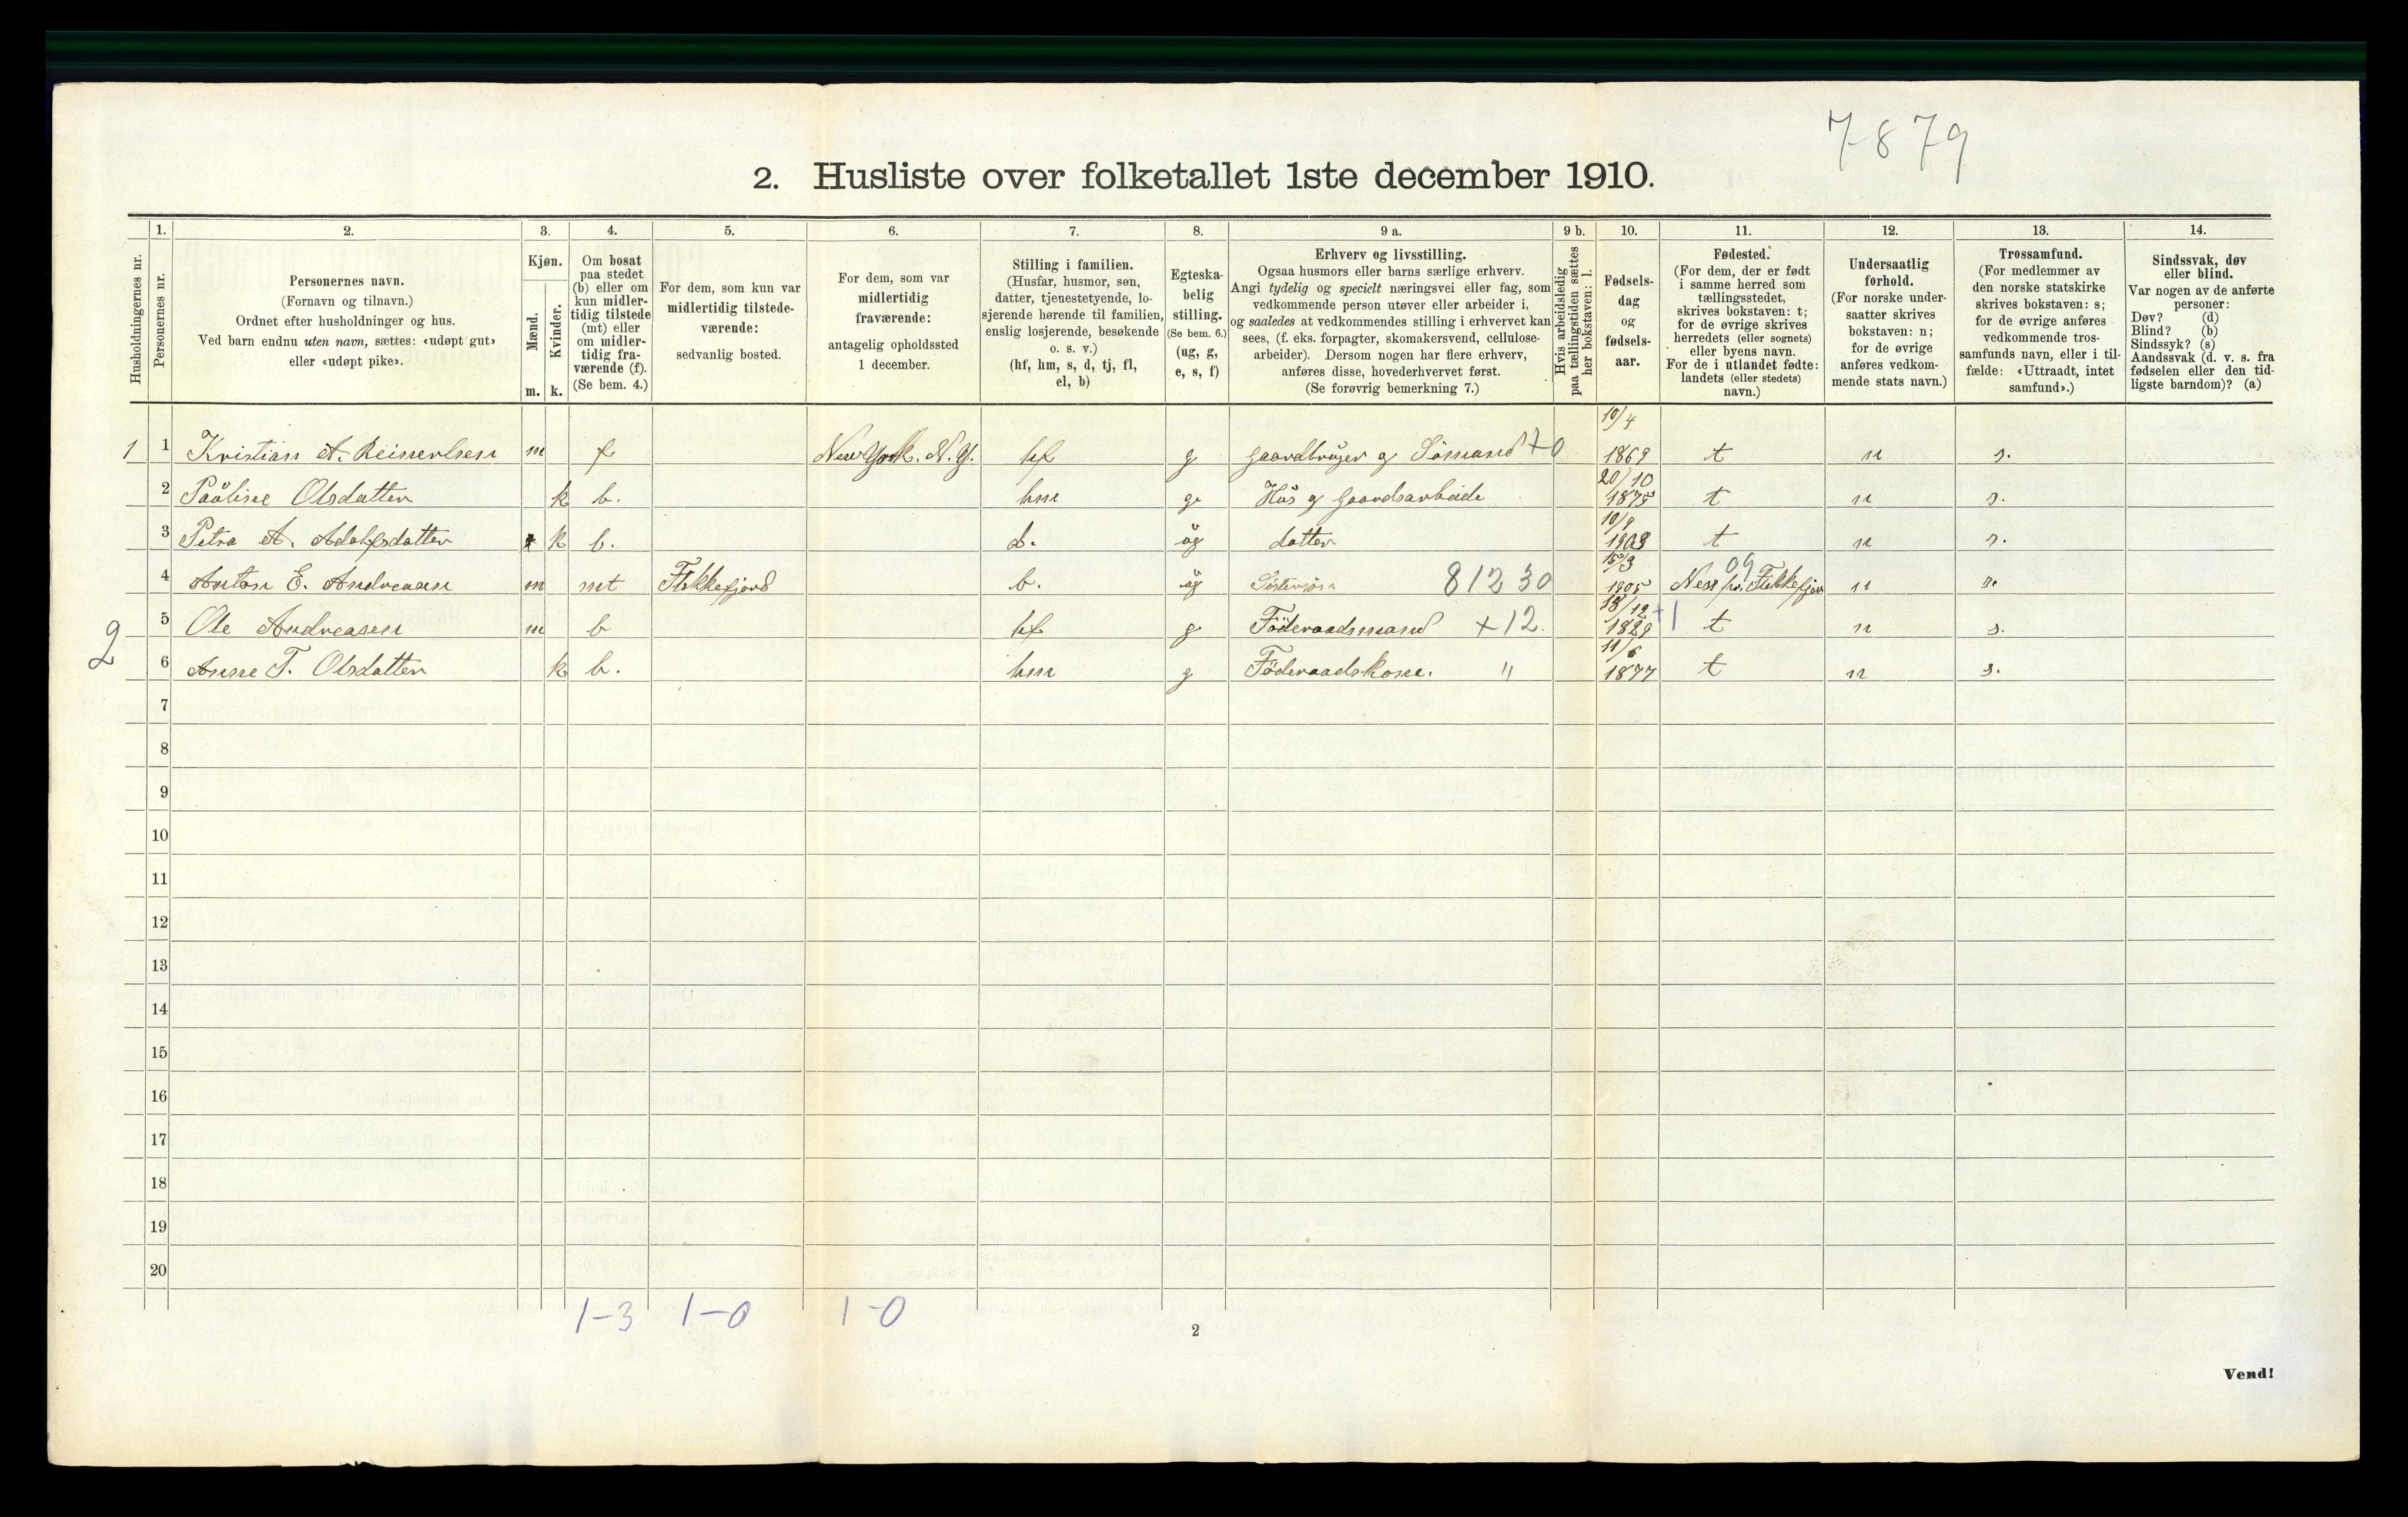 7879
2. Husliste over folketallet 1ste december 1910.
Husholdningernes nr.
1.
Personernes nr.
2.
Personernes navn.
(Fornavn og tilnavn.)
Ordnet efter husholdninger og hus.
Ved barn endnu uten navn, sættes: «udøpt gut»
eller «udøpt pike».
3.
Kjøn.
Mænd.
Kvinder.
m. k.
4.
Om bosat
paa stedet
(b) eller om
kun midler-
tidig tilstede
(mt) eller
om midler-
tidig fra-
værende (f).
(Se bem. 4.)
5.
For dem, som kun var
midlertidig tilstede-
værende:
sedvanlig bosted.
6.
For dem, som var
midlertidig
fraværende:
antagelig opholdssted
1 december.
7.
Stilling i familien.
(Husfar, husmor, søn,
datter, tjenestetyende, lo-
sjerende hørende til familien,
enslig losjerende, besøkende
o. s. v.)
(hf, hm, s, d, tj, fl,
el, b)
8.
Egteska-
belig
stilling.
(Se bem. 6.)
(ug, g,
e, s, f)
9 a.
Erhverv og livsstilling.
Ogsaa husmors eller barns særlige erhverv.
Angi tydelig og specielt næringsvei eller fag, som
vedkommende person utøver eller arbeider i,
og saaledes at vedkommendes stilling i erhvervet kan
sees, (f. eks. forpagter, skomakersvend, cellulose-
arbeider). Dersom nogen har flere erhverv,
anføres disse, hovederhvervet først.
(Se forøvrig bemerkning 7.)
9 b.
Hvis arbeidsledig
paa tællingstiden sættes
her bokstaven: l.
10.
Fødsels-
dag
og
fødsels-
aar.
11.
Fødested.
(For dem, der er født
i samme herred som
tællingsstedet,
skrives bokstaven: t;
for de øvrige skrives
herredets (eller sognets)
eller byens navn.
For de i utlandet fødte:
landets (eller stedets)
navn.)
12.
Undersaatlig
forhold.
(For norske under-
saatter skrives
bokstaven: n;
for de øvrige
anføres vedkom-
mende stats navn.)
13.
Trossamfund.
(For medlemmer av
den norske statskirke
skrives bokstaven: s;
for de øvrige anføres
vedkommende tros-
samfunds navn, eller i til-
fælde: «Uttraadt, intet
samfund».)
14.
Sindssvak, døv
eller blind.
Var nogen av de anførte
personer:
Døv? (d)
Blind? (b)
Sindssyk? (s)
Aandssvak (d. v. s. fra
fødselen eller den tid-
ligste barndom)? (a)
1 1 Kristian A. Reinertsen m f New York. N. Y. hf g gaardbruger og Sömand 10/4 1869 t n s.
2 Pauline Olsdatter k b. hm g. Hus og Gaardsarbeide 20/10 1875 t n s.
3 Petra A. Adolfsdatter k b. d. ug datter 10/9 t n s.
4 Anton E. Andreasen m mt Flekkefjord b. ug Søstersøn 81230 15/3 1905 09 Ness pr. Flekkefjor n s.
2 5 Ole Andreasen m b hf g Föderaadsmand +12. 18/12 1829 +1 t n s.
6 Anne T. Olsdatter k b. hm g Föderaadskone. " 11/6 1877 t n s.
7
8
9
10
11
12
13
14
15
16
17
18
19
20
1-3 1-0 1-0
2
Vend!